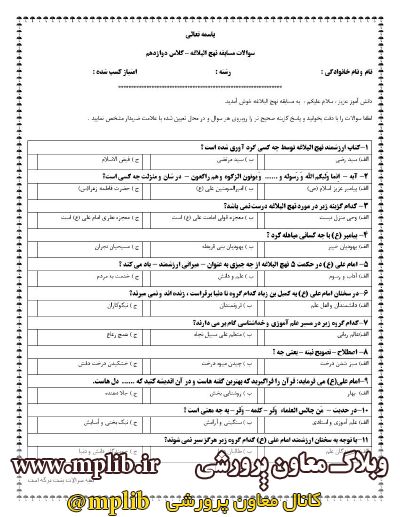 باسمه تعالی
سوالات مسابقه نهج البلاغه – کلاس دوازدهم
نام و نام خانوادگی : رشته : امتیاز کسب شده :
دانش آموز عزیز ، سلام علیکم . به مسابقه نهج البلاغه خوش آمدید.
لطفا سوالات را با دقت بخوانید و پاسخ گزینه صحیح را روبروی هر سوال و در محل تعیین شده با علامت ضربدر مشخص نمایید .
۱–کتاب ارزشمند نهج البلاغه توسط چه کسی گرد آوری شده است ؟
الف) سید رضی ب ) سید مرتضی ج ) فیض الاسلام
۲– آیه – انما ولیکم الله و رسوله و ...... و یوتون الزکوه و هم راکعون – در شان و منزلت چه کسی است؟
الف) پیامبر عزیز اسلام (ص) ب ) امیرالمومنین علی (ع) ج ) حضرت فاطمه زهرا(س)
۳– کدام گزینه زیر در مورد نهج البلاغه درست نمی باشد؟
الف) وحی منزل نیست ب ) معجزه قولی امامت علی (ع) است ج ) معجزه نظری امام علی (ع) است
۴– پیامبر (ع) با چه کسانی مباهله کرد ؟
الف) یهودیان خیبر ب ) یهودیان بنی قریظه ج ) مسیحیان نجران
۵– امام علی (ع) در حکمت ۵ نهج البلاغه از چه چیزی به عنوان – میراثی ارزشمند – یاد می کند ؟
الف) آداب و رسوم ب ) علم و دانش ج ) خدمت به مردم
۶–در سخنان امام علی (ع) به کمیل بن زیاد کدام گروه تا دنیا برقراست ، زنده اند و نمی میرند؟
الف) دانشمندان و اهل علم ب ) ثروتمندان ج ) نیکوکاران
۷–کدام گروه زیر در مسیر علم آموزی و خداشناسی گام بر می دارند؟
الف)عالم ربانی ب ) متعلم علی سبیل نجاه ج ) همج رعاع
۸– اصطلاح – تصویح نبته – یعنی چه ؟
الف) سبز شدن درخت ب ) چیدن میوه درخت ج ) خشکیدن درخت دانش
۹–امام علی(ع) می فرماید: قرآن را فراگیرید که بهترین گفته هاست و در آن اندیشه کنید که ...... دل هاست.
الف) بهار ب ) روشنایی بخش ج ) جلا دهنده
۱۰–در حدیث – من جالس العلماء وقر – کلمه – وقر – به چه معنی است ؟
الف) علم آموزی و استادی ب ) سنگینی و آرامش ج ) نیک بختی و آسایش
۱۱– با توجه به سخنان ارزشمند امام علی (ع) کدام گروه زیر هرگز سیر نمی شوند؟
وبلاگ معاون پرورشی www.mplib.ir
کانال معاون پرورشی @mplib